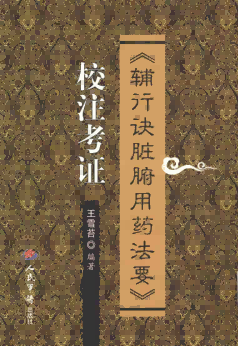 《辅行诀脏腑用药法要》
校注考证
王雪苔◎编著
人民军医出版社